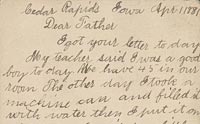 Cedar Rapids Iowa Apr 1881
Dear Father
I got your letter to day
My teacher said I was a good
boy to day. We have 45 in our
room The other day I took a
machine can and filled it
with water then I put it on